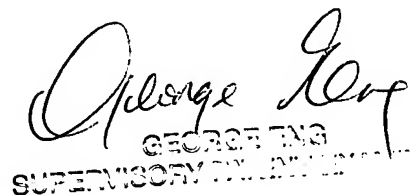 George Eng
GEORGE ENG
SUPERVISORY